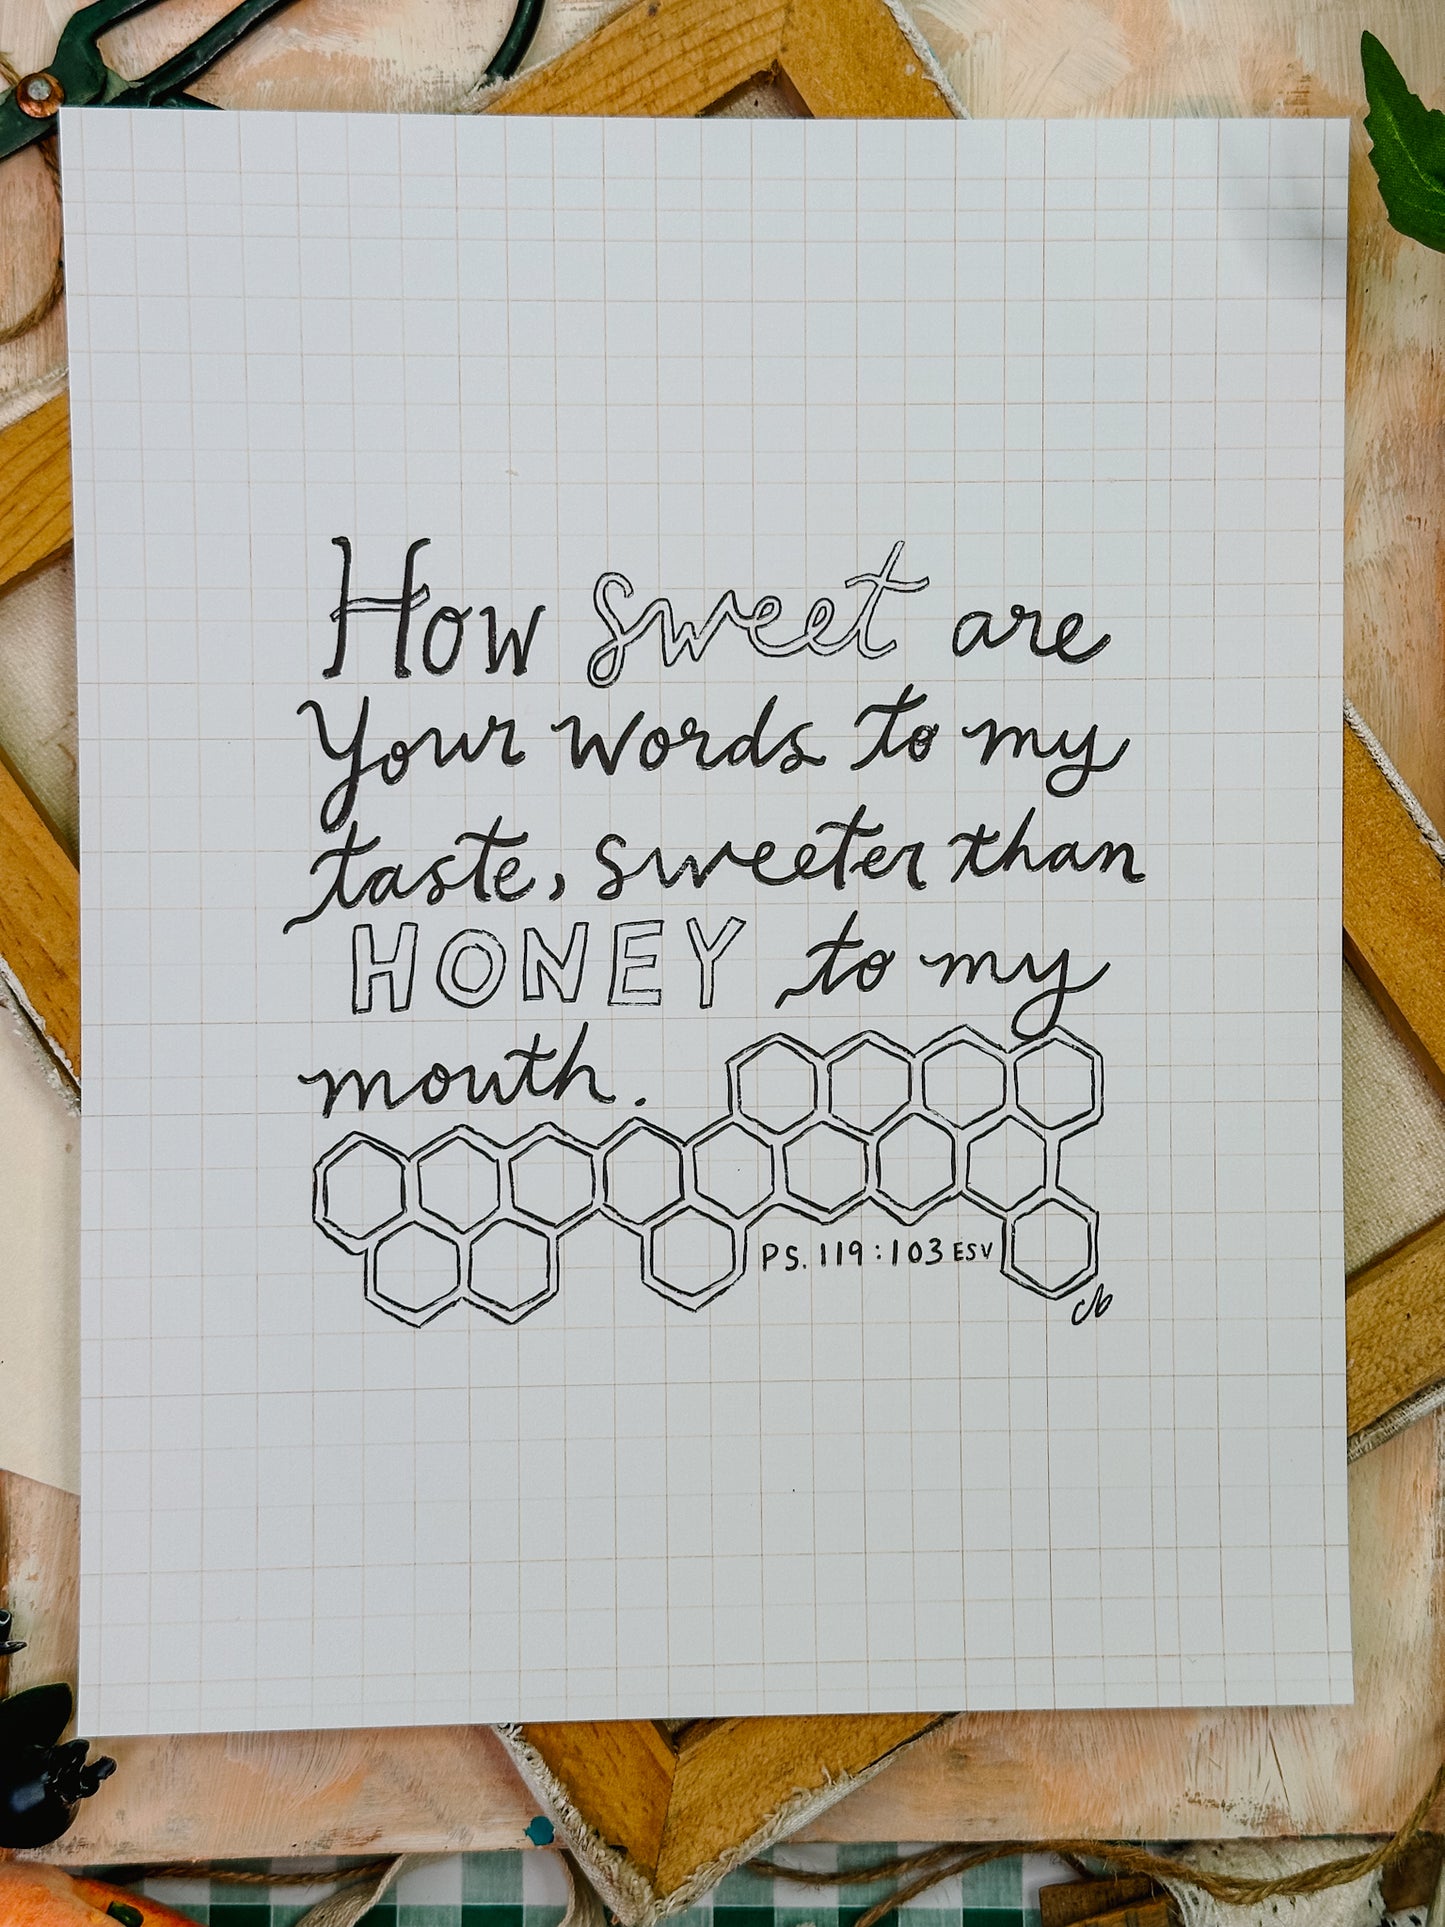 How sweet are
Your words to my
taste, sweeter than
HONEY to my
mouth.
PS. 119:103 ESV